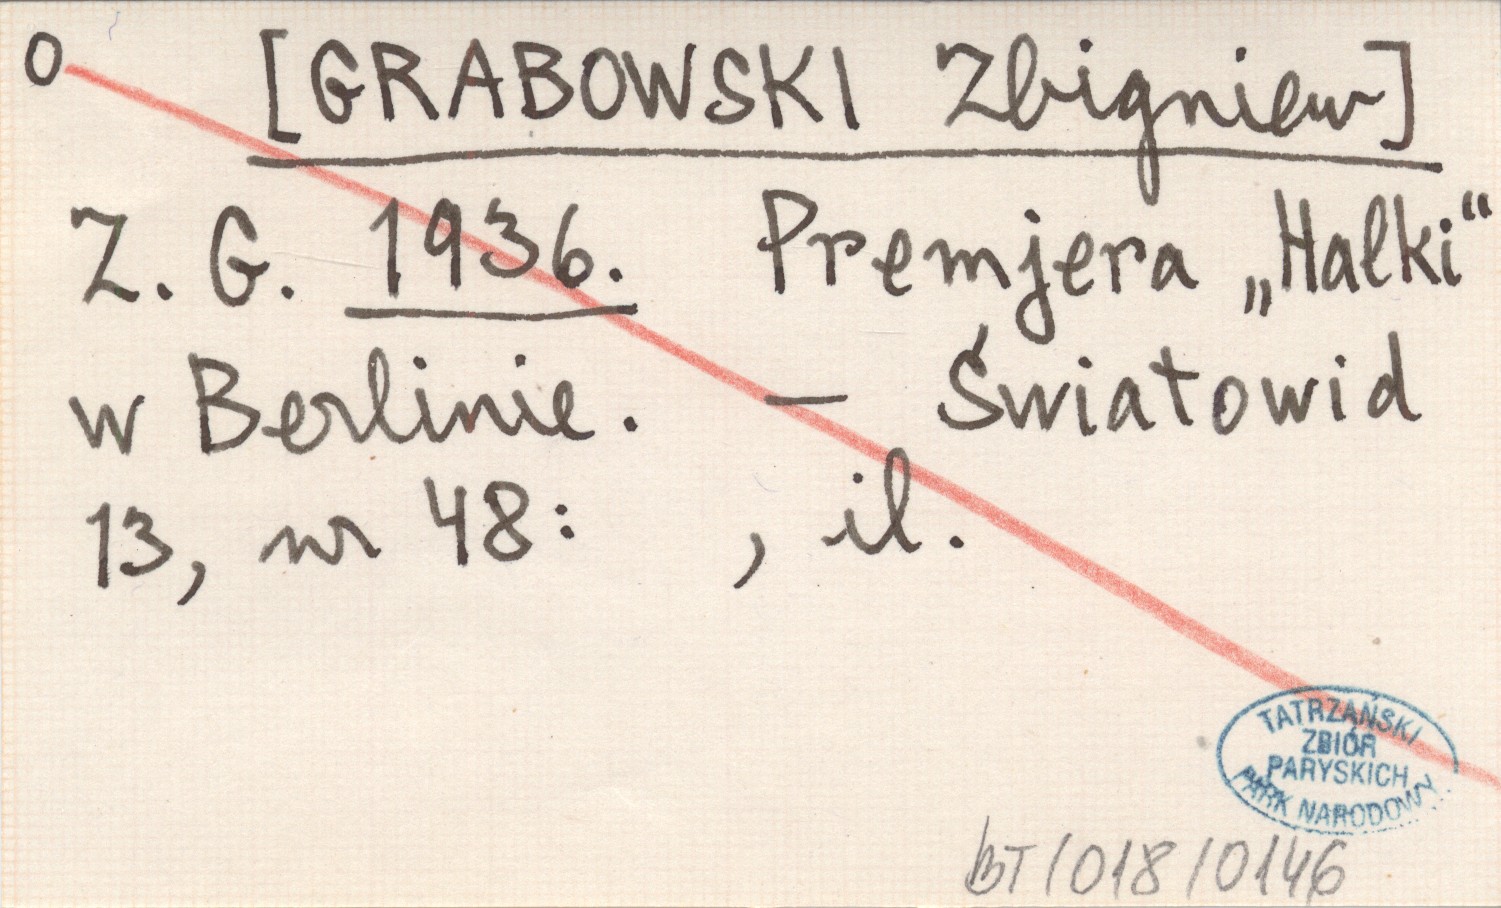 O [GRABOWSKI Zbigniew]
Z. G. 1936. Premjera „Halki“
w Berlinie. — Światowid
13, nr 48: , il.
TATRZAŃSKI
ZBIÓR
PARYSKICH
PARK NARODOWY
BT/018/0146